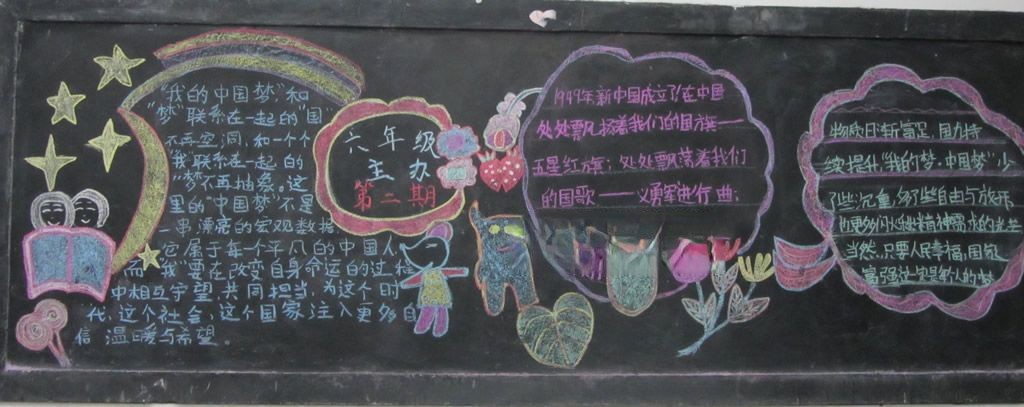 "我的中国梦"和
"梦"联系在一起的"国
不再空洞,和一个个
"我"联系在一起的
"梦"不再抽象。这
里的"中国梦"不是
一串漂亮的宏观数据
它属于每一个平凡的中国人
而"我"要在改变自身命运的过程
中相互守望,共同担当,为这个时
代,这个社会,这个国家注入更多自
信、温暖与希望。
六年级
主办
第二期
1949年新中国成立了在中国
处处飘扬着我们的国旗——
五星红旗;处处飘荡着我们
的国歌——义勇军进行曲;
物质日渐富足,国力持
续提升"我的梦,中国梦"少
些沉重,多些自由与放开
更多内心和精神需求的光芒
当然,只要人民幸福,国家
富强这